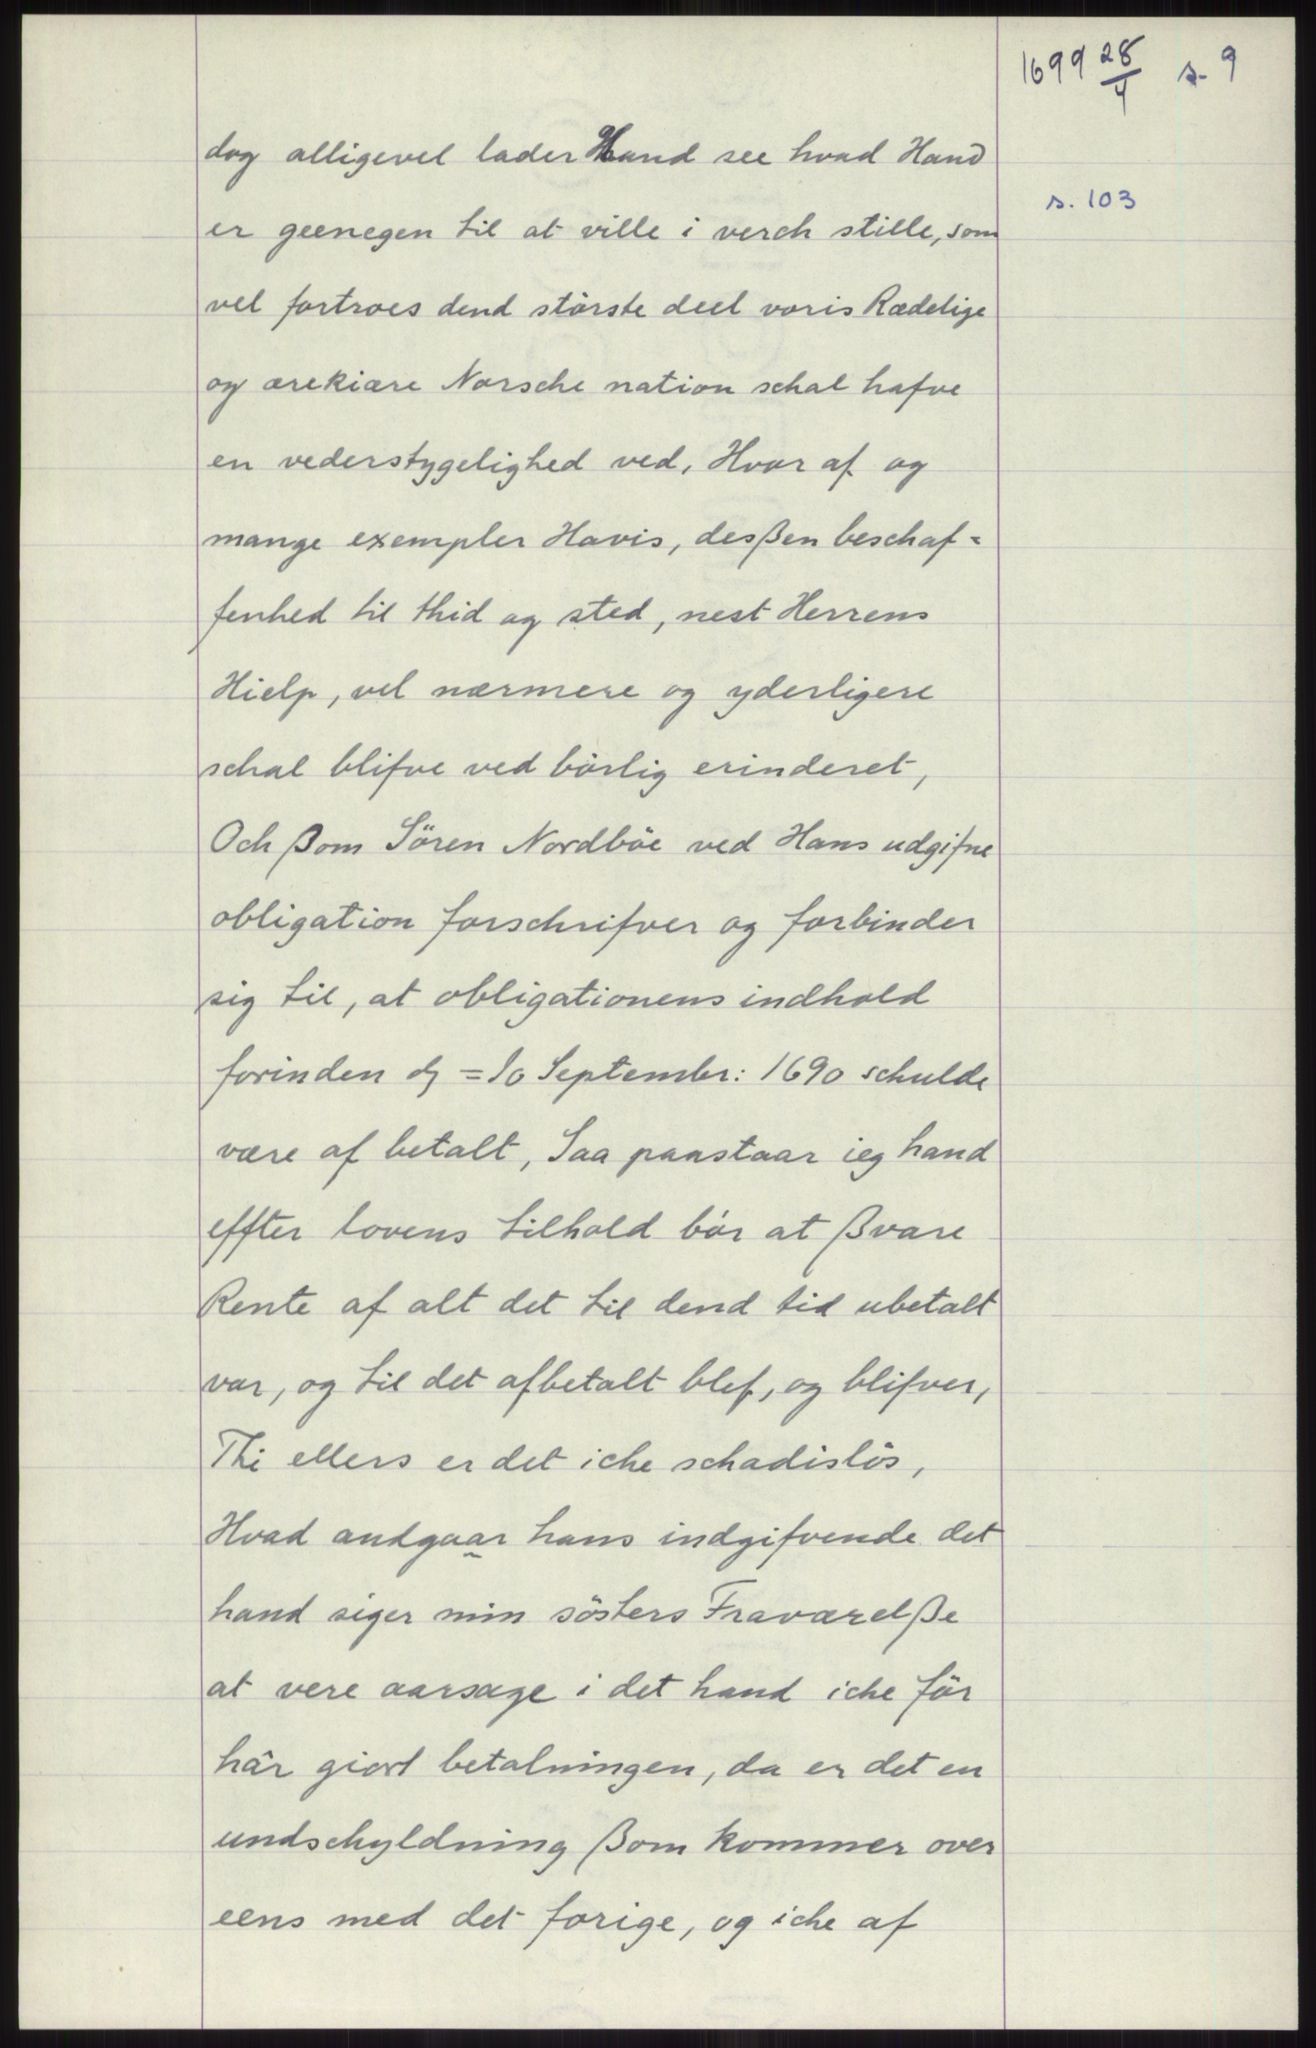 1699 28/4 s. 9
s. 103
dog alligevel lader Hand see hvad Hand
er geenegen til at ville i verch stille, som
vel fortroes dend störste deel voris Rædelige
og ærekiære Norsche nation schal hafve
en vederstygelighed ved, Hvor af og
mange exempler Havis, desßen beschaf=
fenhed til thid og sted, nest Herrens
Hielp, vel nærmere og yderligere
schal blifve ved börlig erinderet,
Och ßom Sören Nordböe ved Hans udgifne
obligation forschrifver og forbinder
sig til, at obligationens indhold
forinden = 10 Septembr: 1690 schulde
være af betalt, Saa paastaar ieg hand
effter lovens tilhold bör at ßvare
Rente af alt det til dend tid ubetalt
var, og til det afbetalt blef, og blifver,
Thi ellers er det iche schadislös,
Hvad andgaar hans indgifvende det
hand siger min sösters Fraværelße
at vere aarsage i det hand iche för
hâr giort betalningen, da er det en
undschyldning ßom kommer over
eens med det forige, og iche af